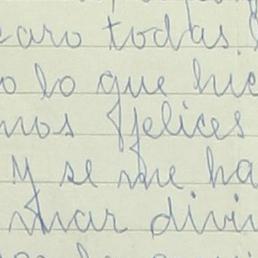 caro todas.
o lo que hic
mos felices
y se me ha
mar divi